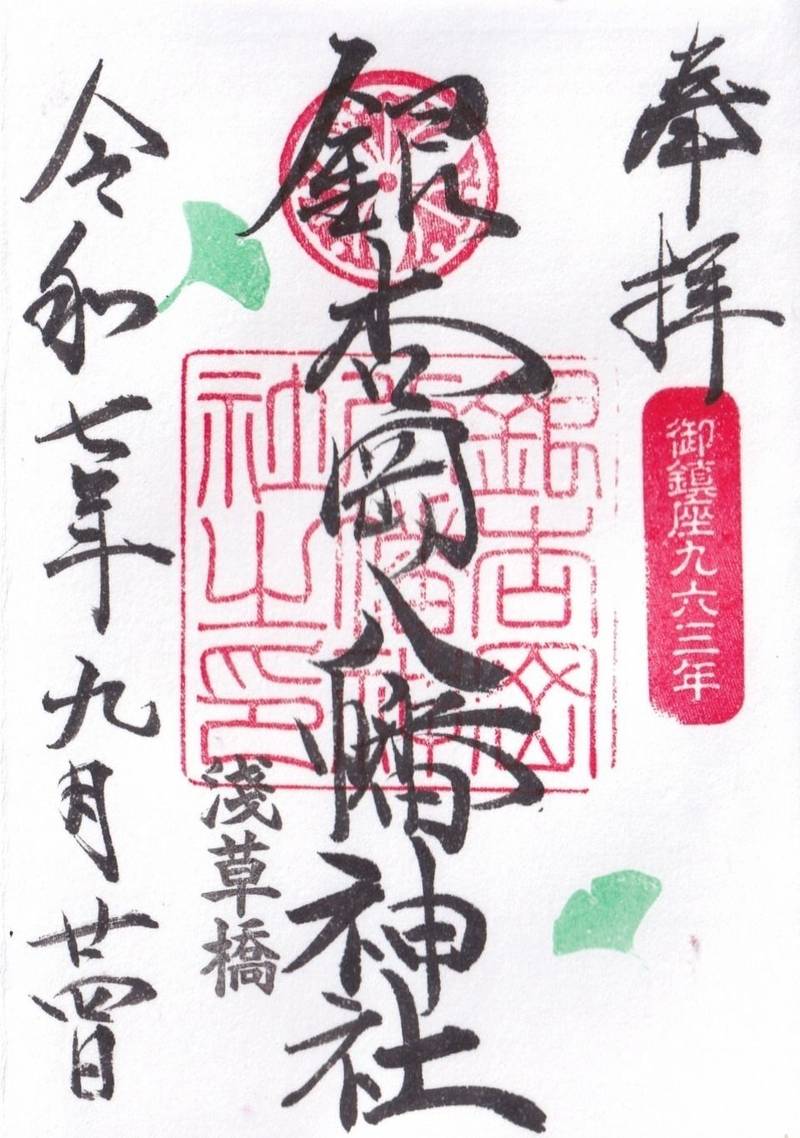 奉拝
御鎮座九六三年
銀杏岡八幡神社
銀杏岡八幡神社之印
浅草橋
令和七年九月廿四日